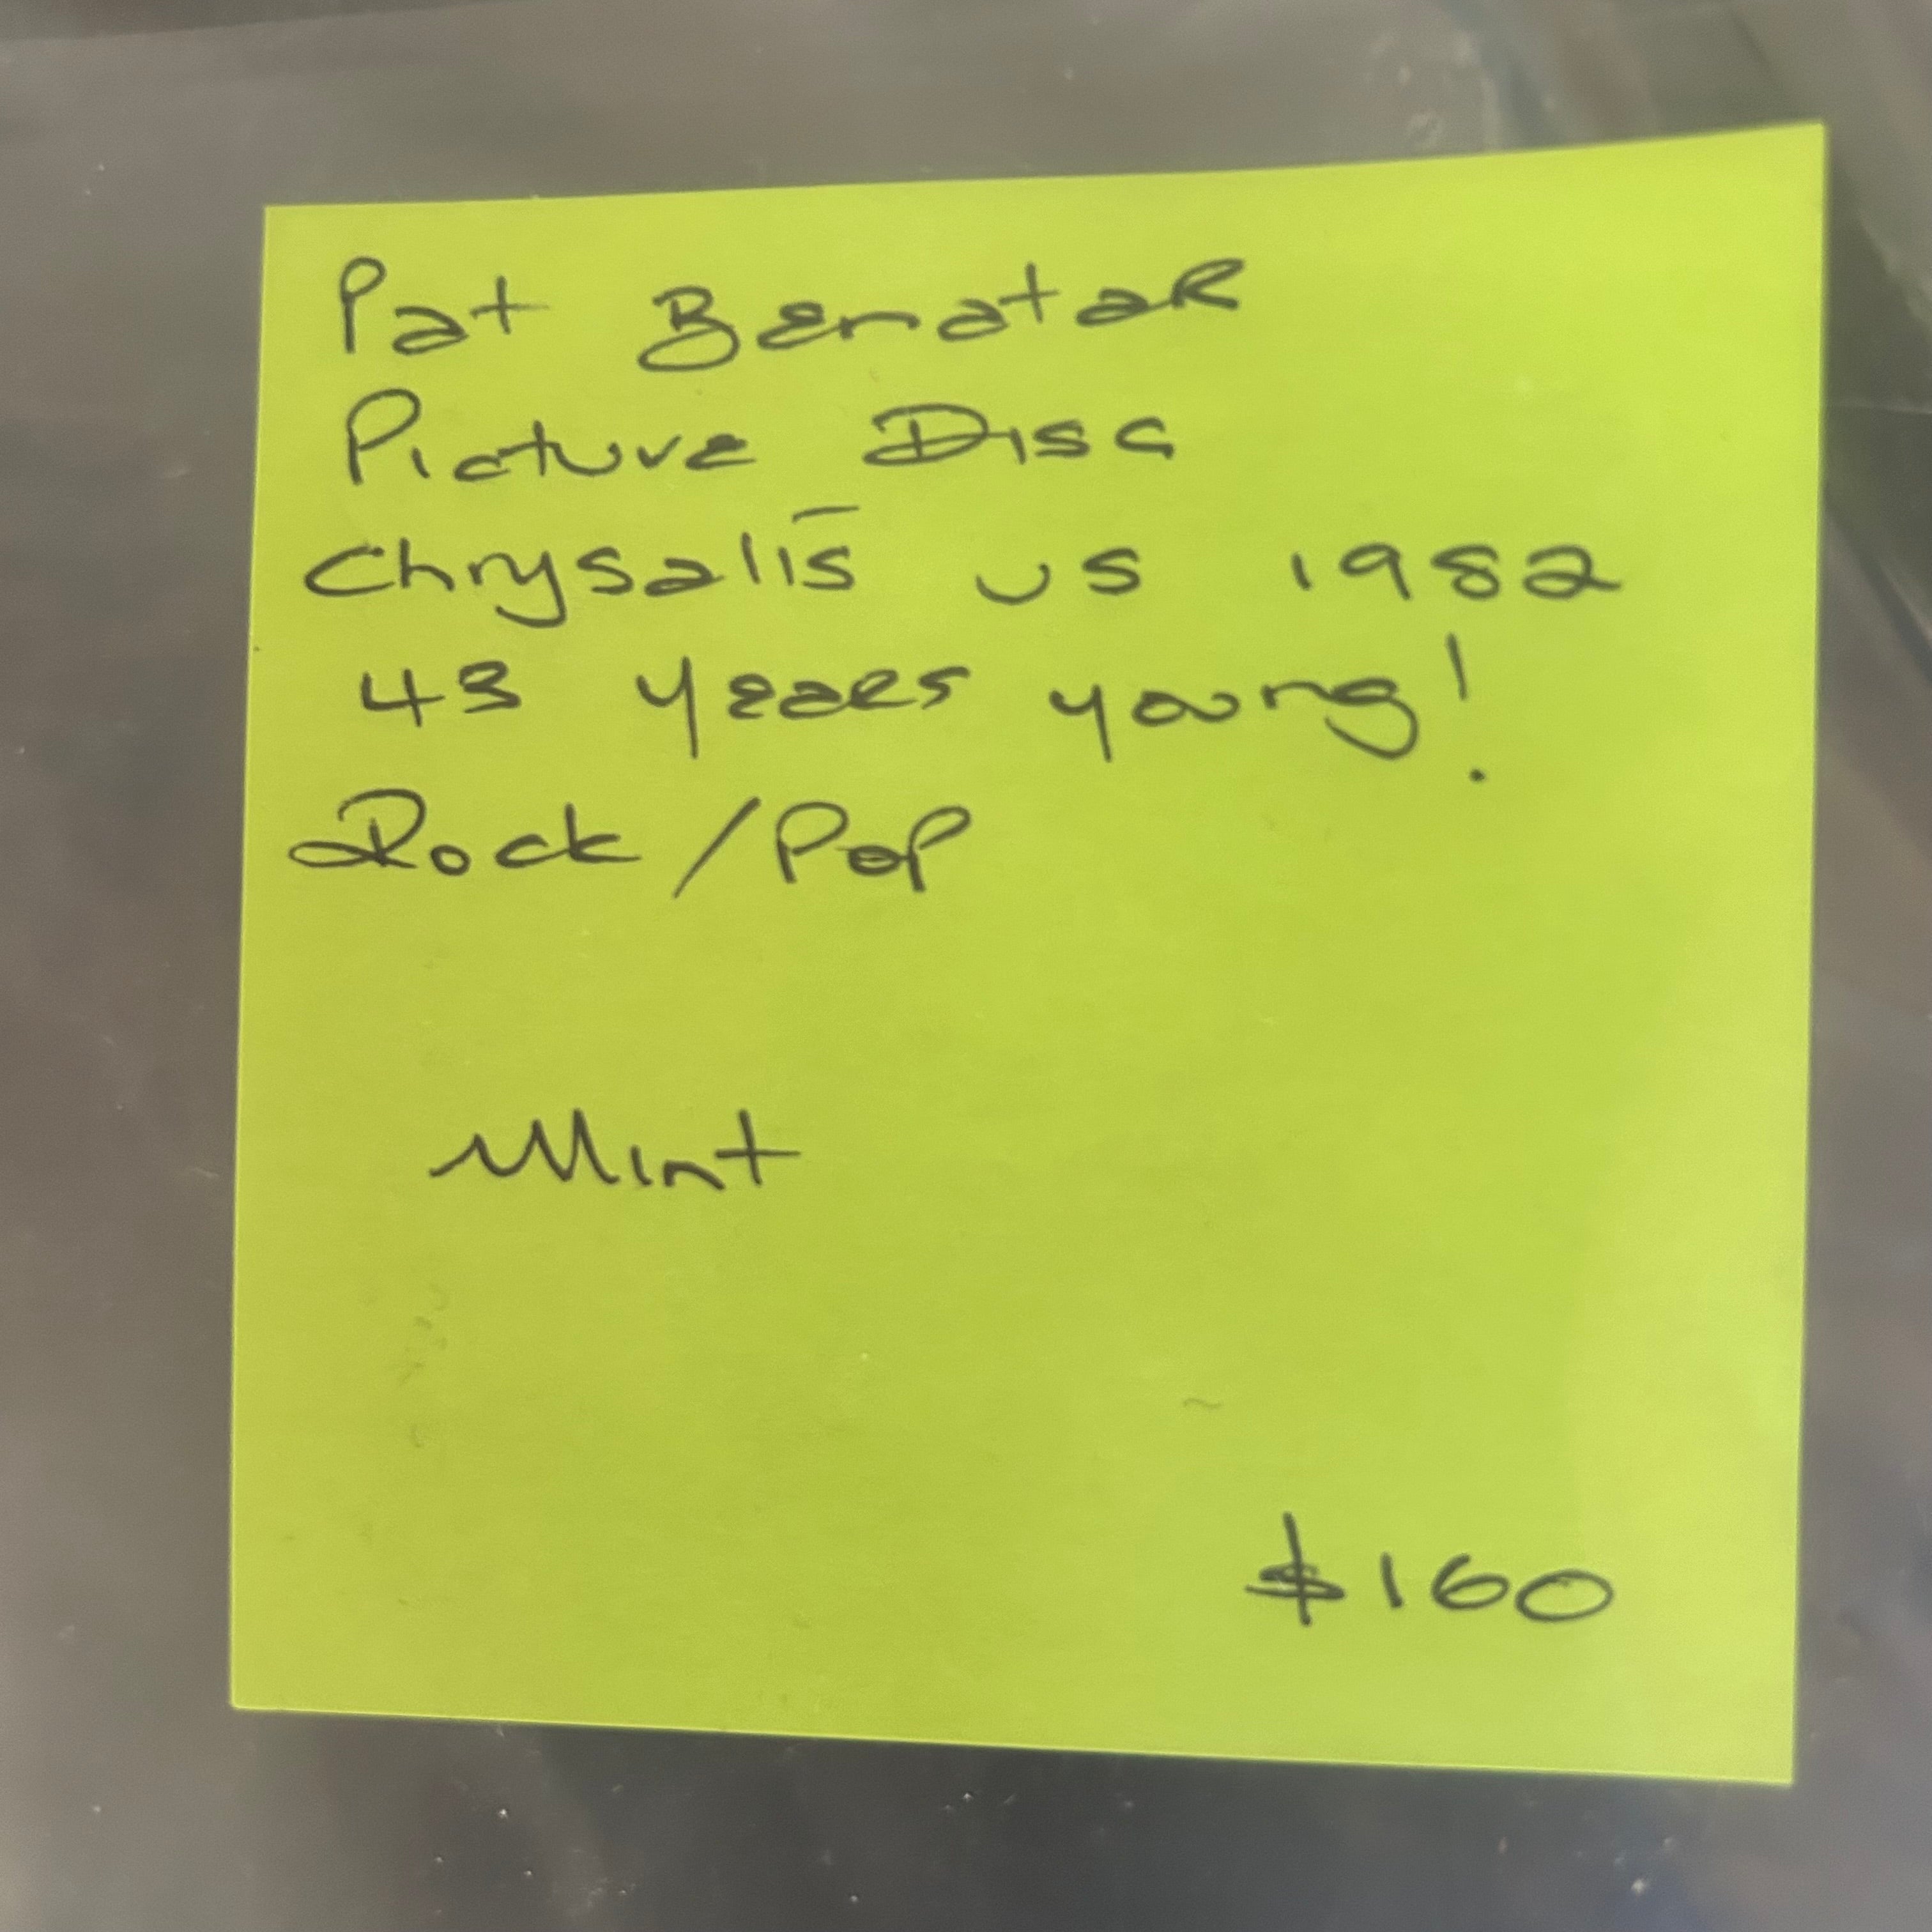 Pat Benatar
Picture Disc
Chrysalis US 1982
43 years young!
Rock/Pop
Mint
$160